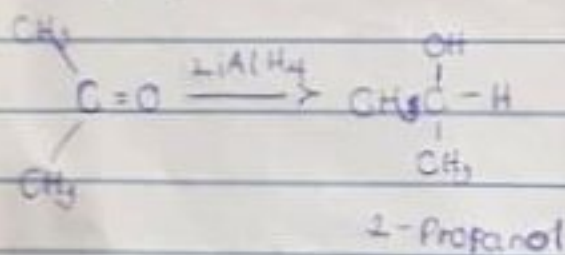 CH3 OH
C=O LiAlH4 CH3C-H
CH3 CH3
2-Propanol